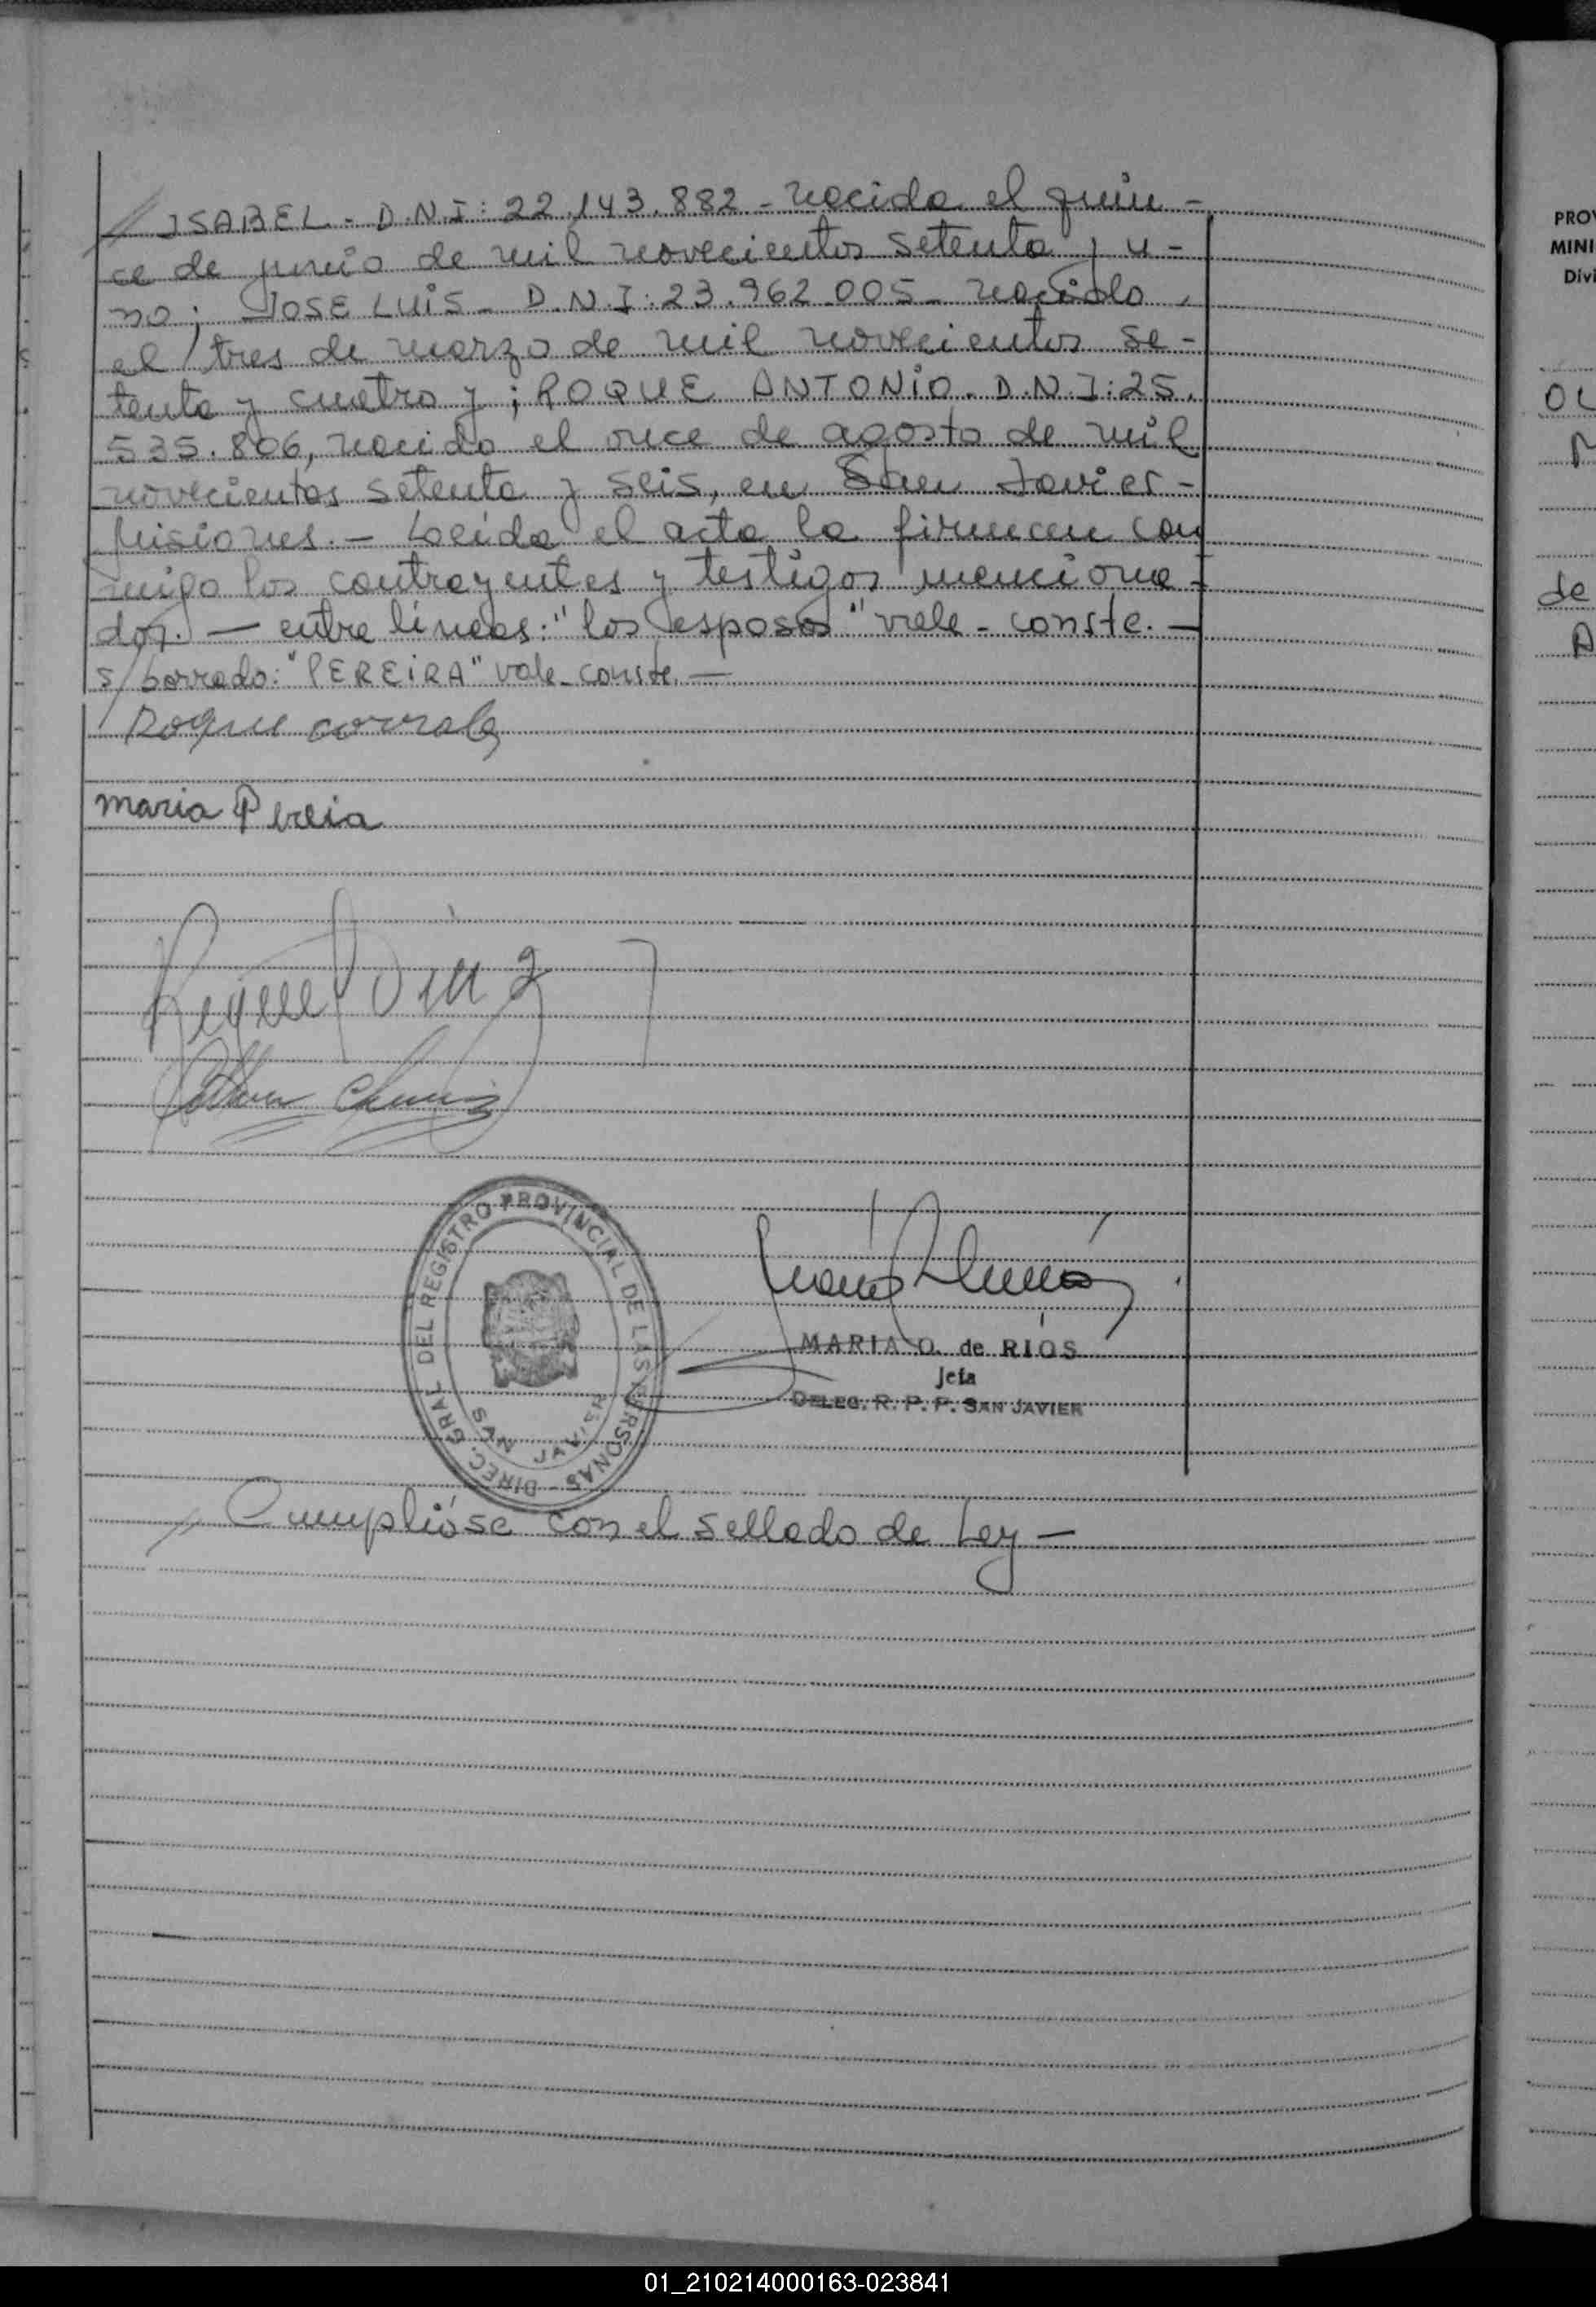 // ISABEL - D.N.I: 22.143.882 - nacida el quin -
ce de junio de mil novecientos setenta y u -
no; JOSE LUIS - D.N.I: 23.962.005 - nacido
el tres de marzo de mil novecientos se -
tenta y cuatro y ; ROQUE ANTONIO - D.N.I: 25.
535.806, nacido el once de agosto de mil
novecientos setenta y seis, en San Javier -
Misiones. - Leída el acta la firman con
migo los contrayentes y testigos menciona -
dos. - entre líneas: "los esposos" vale - conste. -
s/ borrado: "PEREIRA" vale - conste. -
Roque corrals
maria Pereia
DIREC. GRAL DEL REGISTRO PROVINCIAL DE LAS PERSONAS -
SAN JAVIER
MARIA O. de RIOS
Jefa
DELEG. R. P. P. SAN JAVIER
Cumplióse con el sellado de Ley -
PRO
MINI
Divi
de
01_210214000163-023841